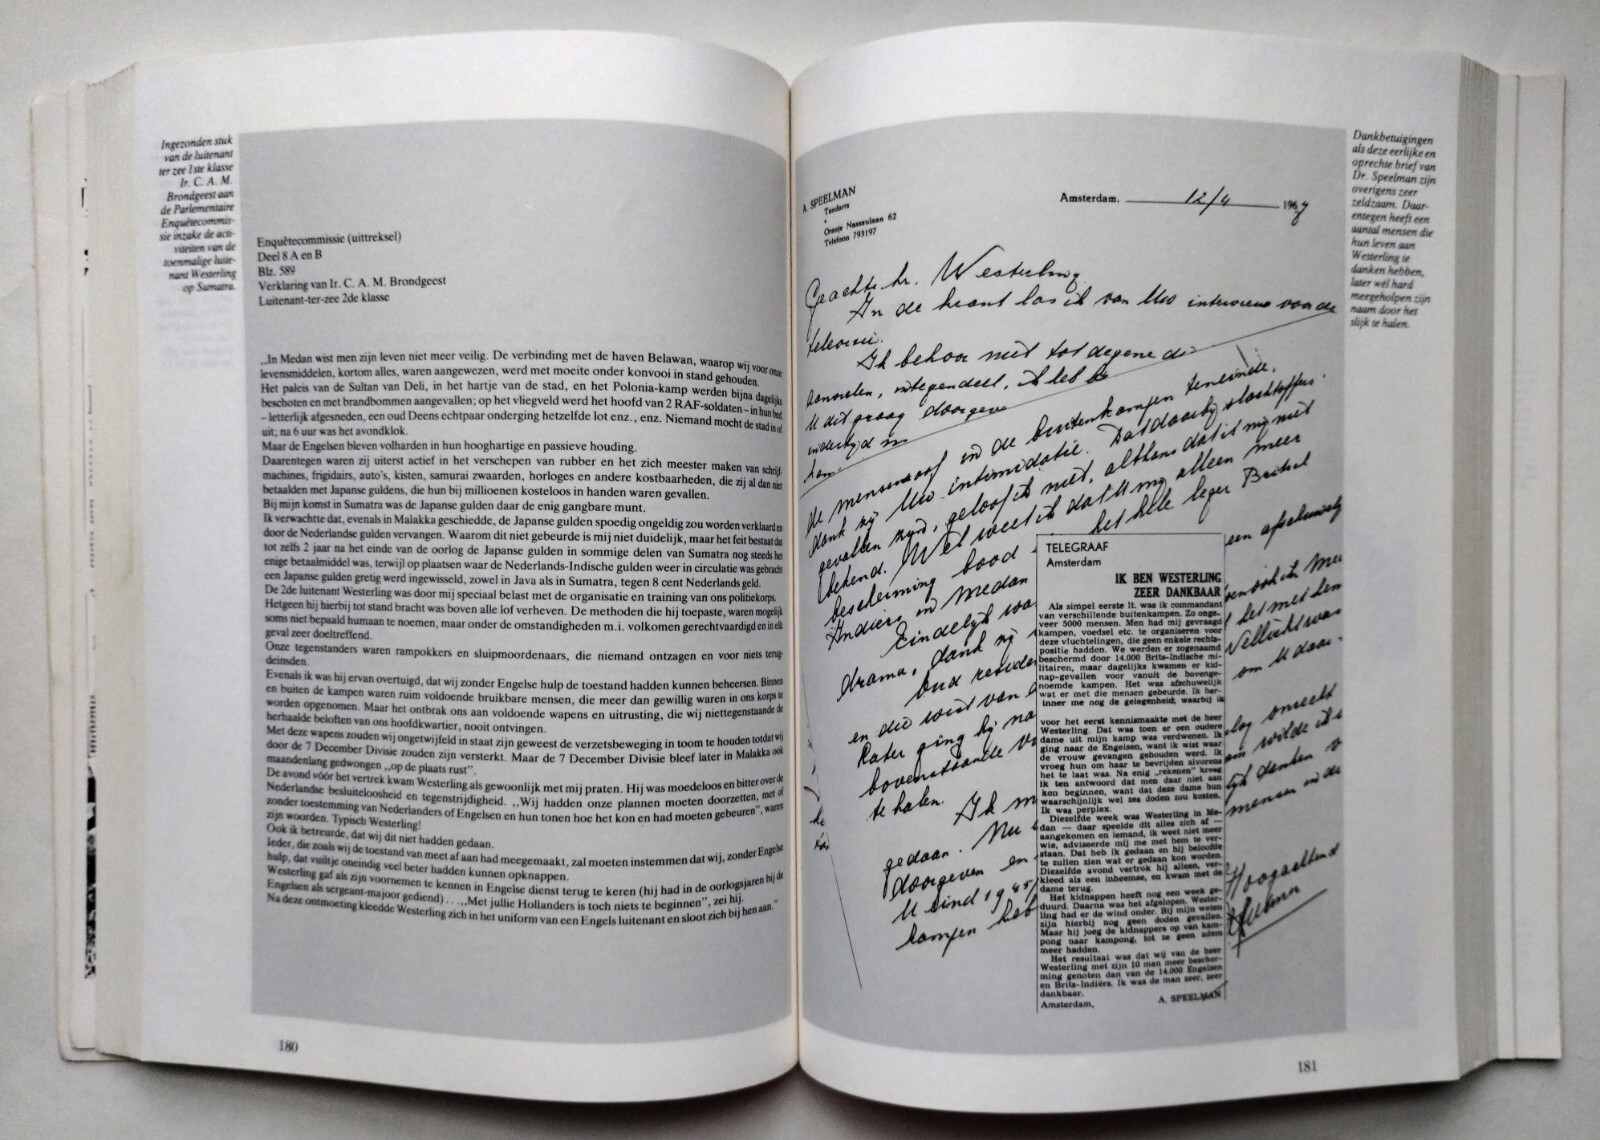 Ingezonden stuk
van de luitenant
ter zee 1ste klasse
Ir. C. A. M.
Brondgeest aan
de Parlementaire
Enquêtecommis-
sie inzake de acti-
viteiten van de
toenmalige luite-
nant Westerling
op Sumatra.
Enquêtecommissie (uittreksel)
Deel 8 A en B
Blz. 589
Verklaring van Ir. C. A. M. Brondgeest
Luitenant-ter-zee 2de klasse
„In Medan wist men zijn leven niet meer veilig. De verbinding met de haven Belawan, waarop wij voor onze
levensmiddelen, kortom alles, waren aangewezen, werd met moeite onder konvooi in stand gehouden.
Het paleis van de Sultan van Deli, in het hartje van de stad, en het Polonia-kamp werden bijna dagelijks
beschoten en met brandbommen aangevallen; op het vliegveld werd het hoofd van 2 RAF-soldaten – in hun bed
– letterlijk afgesneden, een oud Deens echtpaar onderging hetzelfde lot enz., enz. Niemand mocht de stad in of
uit; na 6 uur was het avondklok.
Maar de Engelsen bleven volharden in hun hooghartige en passieve houding.
Daarentegen waren zij uiterst actief in het verschepen van rubber en het zich meester maken van schrijf-
machines, frigidairs, auto's, kisten, samurai zwaarden, horloges en andere kostbaarheden, die zij al dan niet
betaalden met Japanse guldens, die hun bij millioenen kosteloos in handen waren gevallen.
Bij mijn komst in Sumatra was de Japanse gulden daar de enig gangbare munt.
Ik verwachtte dat, evenals in Malakka geschiedde, de Japanse gulden spoedig ongeldig zou worden verklaard en
door de Nederlandse gulden vervangen. Waarom dit niet gebeurde is mij niet duidelijk, maar het feit bestaat dat
tot zelfs 2 jaar na het einde van de oorlog de Japanse gulden in sommige delen van Sumatra nog steeds het
enige betaalmiddel was, terwijl op plaatsen waar de Nederlands-Indische gulden weer in circulatie was gebracht
een Japanse gulden gretig werd ingewisseld, zowel in Java als in Sumatra, tegen 8 cent Nederlands geld.
De 2de luitenant Westerling was door mij speciaal belast met de organisatie en training van ons politiekorps.
Hetgeen hij hierbij tot stand bracht was boven alle lof verheven. De methoden die hij toepaste, waren mogelijk
soms niet bepaald humaan te noemen, maar onder de omstandigheden m.i. volkomen gerechtvaardigd en in elk
geval zeer doeltreffend.
Onze tegenstanders waren rampokkers en sluipmoordenaars, die niemand ontzagen en voor niets terug-
deinsden.
Evenals ik was hij ervan overtuigd, dat wij zonder Engelse hulp de toestand hadden kunnen beheersen. Binnen
en buiten de kampen waren ruim voldoende bruikbare mensen, die meer dan gewillig waren in ons korps te
worden opgenomen. Maar het ontbrak ons aan voldoende wapens en uitrusting, die wij niettegenstaande de
herhaalde beloften van ons hoofdkwartier, nooit ontvingen.
Met deze wapens zouden wij ongetwijfeld in staat zijn geweest de verzetsbeweging in toom te houden totdat wij
door de 7 December Divisie zouden zijn versterkt. Maar de 7 December Divisie bleef later in Malakka ook
maandenlang gedwongen „op de plaats rust”.
De avond vóór het vertrek kwam Westerling als gewoonlijk met mij praten. Hij was moedeloos en bitter over de
Nederlandse besluiteloosheid en tegenstrijdigheid. „Wij hadden onze plannen moeten doorzetten, met of
zonder toestemming van Nederlanders of Engelsen en hun tonen hoe het kon en had moeten gebeuren”, waren
zijn woorden. Typisch Westerling!
Ook ik betreurde, dat wij dit niet hadden gedaan.
Ieder, die zoals wij de toestand van meet af aan had meegemaakt, zal moeten instemmen dat wij, zonder Engelse
hulp, dat vuiltje oneindig veel beter hadden kunnen opknappen.
Westerling gaf als zijn voornemen te kennen in Engelse dienst terug te keren (hij had in de oorlogsjaren bij de
Engelsen als sergeant-majoor gediend) . . . „Met jullie Hollanders is toch niets te beginnen”, zei hij.
Na deze ontmoeting kleedde Westerling zich in het uniform van een Engels luitenant en sloot zich bij hen aan.”
180
A. SPEELMAN
Tandarts
Oranje Nassaulaan 62
Telefoon 793197
Amsterdam. 12/4 1969
Geachte hr. Westerling
In de krant las ik van Uw interview voor de
televisie.
Ik behoor niet tot degene die
aanvallen, integendeel, ik heb
U dit graag doorgeve
indertijd
de mensenroof in de buitenkampen teneinde,
dank zij Uw intimidatie. Dat daarbij slachtoffers
gevallen zijn, geloof ik niet, althans dat is mij niet
bekend. Wel weet ik dat U mij alleen meer
bescherming bood het hele leger Brits
Indiërs in Medan
een afschuwelijk
Eindelijk
drama, dank zij
en die
Kater ging hij
bovenstaande
te halen.
Ik
gedaan. Nu
doorgeven en
U eind 1945
kampen heb
Hoogachtend
Speelman
TELEGRAAF
Amsterdam
IK BEN WESTERLING
ZEER DANKBAAR
Als simpel eerste lt. was ik commandant
van verschillende buitenkampen. Zo onge-
veer 5000 mensen. Men had mij gevraagd
kampen, voedsel etc. te organiseren voor
deze vluchtelingen, die geen enkele rechts-
positie hadden. We werden er zogenaamd
beschermd door 14.000 Brits-Indische mi-
litairen, maar dagelijks kwamen er kid-
nap-gevallen voor vanuit de bovenge-
noemde kampen. Het was afschuwelijk
wat er met die mensen gebeurde. Ik her-
inner me nog de gelegenheid, waarbij ik
voor het eerst kennismaakte met de heer
Westerling. Dat was toen er een oudere
dame uit mijn kamp was verdwenen. Ik
ging naar de Engelsen, want ik wist waar
de vrouw gevangen gehouden werd. Ik
vroeg hun om haar te bevrijden alvorens
het te laat was. Na enig „rekenen” kreeg
ik ten antwoord dat men daar niet aan
kon beginnen, want dat deze dame hun
waarschijnlijk wel zes doden zou kosten.
Ik was perplex.
Diezelfde week was Westerling in Me-
dan — daar speelde dit alles zich af —
aangekomen en iemand, ik weet niet meer
wie, adviseerde mij me met hem te ver-
staan. Dat heb ik gedaan en hij beloofde
te zullen zien wat er gedaan kon worden.
Diezelfde avond vertrok hij alleen, ver-
kleed als een inheemse, en kwam met de
dame terug.
Het kidnappen heeft nog een week ge-
duurd. Daarna was het afgelopen. Wester-
ling had er de wind onder. Bij mijn weten
zijn hierbij nog geen doden gevallen.
Maar hij joeg de kidnappers op van kam-
pong naar kampong, tot ze geen adem
meer hadden.
Het resultaat was dat wij van de heer
Westerling met zijn 10 man meer bescher-
ming genoten dan van de 14.000 Engelsen
en Brits-Indiërs. Ik was de man zeer, zeer
dankbaar.
Amsterdam, A. SPEELMAN
Dankbetuigingen
als deze eerlijke en
oprechte brief van
Dr. Speelman zijn
overigens zeer
zeldzaam. Daar-
entegen heeft een
aantal mensen die
hun leven aan
Westerling te
danken hebben,
later wél hard
meegeholpen zijn
naam door het
slijk te halen.
181